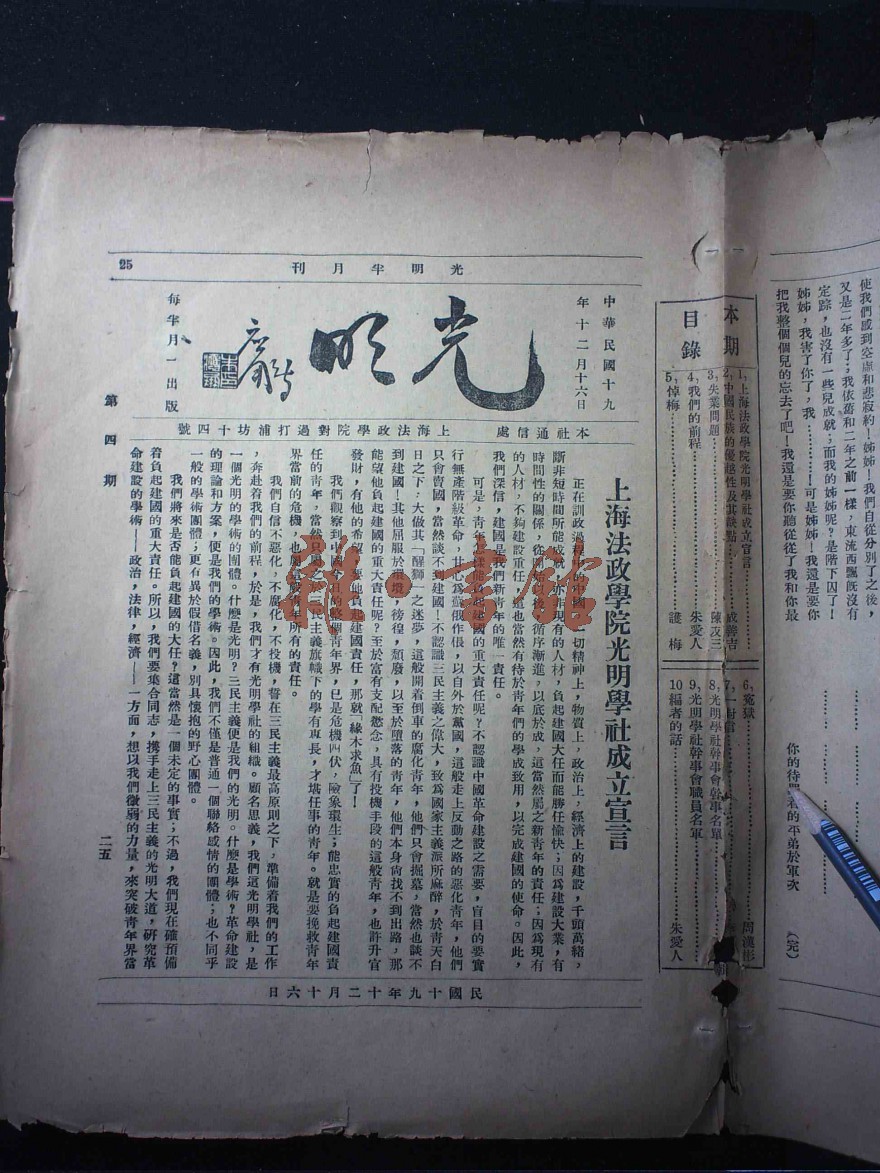 使我們感到空虛和悲寂約!姊姊!我們自從分別了之後,
又是二年多了;我依舊和二年之前一樣,東流西飄既沒有
定踪,也沒有一些兒成就;而我的姊姊呢?是階下囚了!
姊姊,我害了你了,我…………!可是姊姊!我還是要你
把我整個個兒的忘去了吧!我還是要你聽從從了我和你最
你的待罪着的平弟於軍次
(完)
本期
目錄
1,上海法政學院光明學社成立宣言
2,中國民族的優越性及其缺點……成舜吉
3,失業問題……陳友三
4,我們的前程……朱愛人
5,悼梅……護梅
6,冤獄……周漢彬
7,一封信
8,光明學社幹事會幹事名單
9,光明學社幹事會職員名單
10編者的話……朱愛人
光明半月刊
25
中華民國十九
年十二月十六日
光明
每半月一出版
本社通信處 上海法政學院對過打浦坊十四號
第四期
上海法政學院光明學社成立宣言
正在訓政過程中的中國,一切精神上,物質上,政治上,經濟上的建設,千頭萬緒,
斷非短時間所能成就,亦非現有的人材,負起建國大任而能勝任愉快;因爲建設大業,有
時間性的關係,從開始以後,循序漸進,以底於成,這當然屬之新青年的責任;因爲現有
的人材,不夠建設重任,這也當然有待於青年們的學成致用,以完成建國的使命。因此,
我們深信,建國是我們新青年的唯一責任。
可是,青年怎樣能負起建國的重大責任呢?不認識中國革命建設之需要,盲目的要實
行無產階級革命,甘心爲蘇俄作倀,以自外於黨國,這般走上反動之路的惡化青年,他們
只會賣國,當然談不到建國!不認識三民主義之偉大,致爲國家主義派所麻醉,於青天白
日之下,大做其「醒獅」之迷夢,這般開着倒車的腐化青年,他們只會掘墓,當然也談不
到建國!其他屈服於環境,徬徨,頹廢,以至於墮落的青年,他們本身尚找不到出路,那
能望他負起建國的重大責任呢?至於富有支配慾念,具有投機手段的這般青年,也許升官
發財,有他的希望,要他負起建國責任,那就「緣木求魚」了!
我們觀察到中國今日的整個青年界,已是危機四伏,險象環生;能忠實的負起建國責
任的青年,當然只屬之於三民主義旗幟下的學有專長,才堪任事的青年。就是要挽救青年
界當前的危機,也屬這般青年所有的責任。
我們自信不惡化,不腐化,不投機,誓在三民主義最高原則之下,準備着我們的工作
,奔赴着我們的前程,於是,我們才有光明學社的組織。顧名思義,我們這光明學社,是
一個光明的學術的團體。什麼是光明?三民主義便是我們的光明。什麼是學術?革命建設
的理論和方案,便是我們的學術。因此,我們不僅是普通一個聯絡感情的團體;也不同乎
一般的學術團體;更有異於假借名義,別具懷抱的野心團體。
我們將來是否能負起建國的大任?這當然是一個未定的事實;不過,我們現在確預備
着負起建國的重大責任。所以,我們要集合同志,携手走上三民主義的光明大道,研究革
命建設的學術——政治,法律,經濟——一方面,想以我們微弱的力量,來突破青年界當
二五
民國十九年十二月十六日